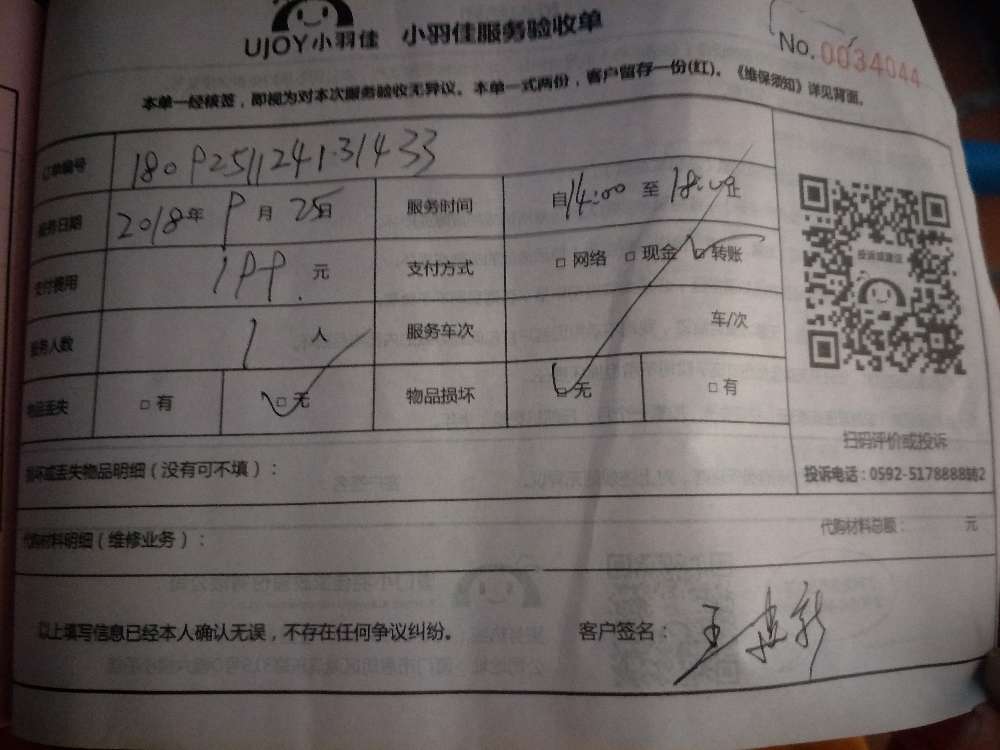 UJOY小羽佳 小羽佳服务验收单
No. 0034044
本单一经核签，即视为对本次服务验收无异议。本单一式两份，客户留存一份(红)。《维保须知》详见背面。
订单编号 180925112413.1433
服务日期 2018年 9月 25日 服务时间 自14:00 至 18:00止
支付费用 199. 元 支付方式 □ 网络 □ 现金 □ 转账
服务人数 1 人 服务车次 车/次
物品丢失 □ 有 □ 无 物品损坏 □ 无 □ 有
投诉或建议
扫码评价或投诉
投诉电话：0592-5178888转2
损坏或丢失物品明细（没有可不填）：
代购材料明细（维修业务）： 代购材料总额： 元
以上填写信息已经本人确认无误，不存在任何争议纠纷。 客户签名： 王